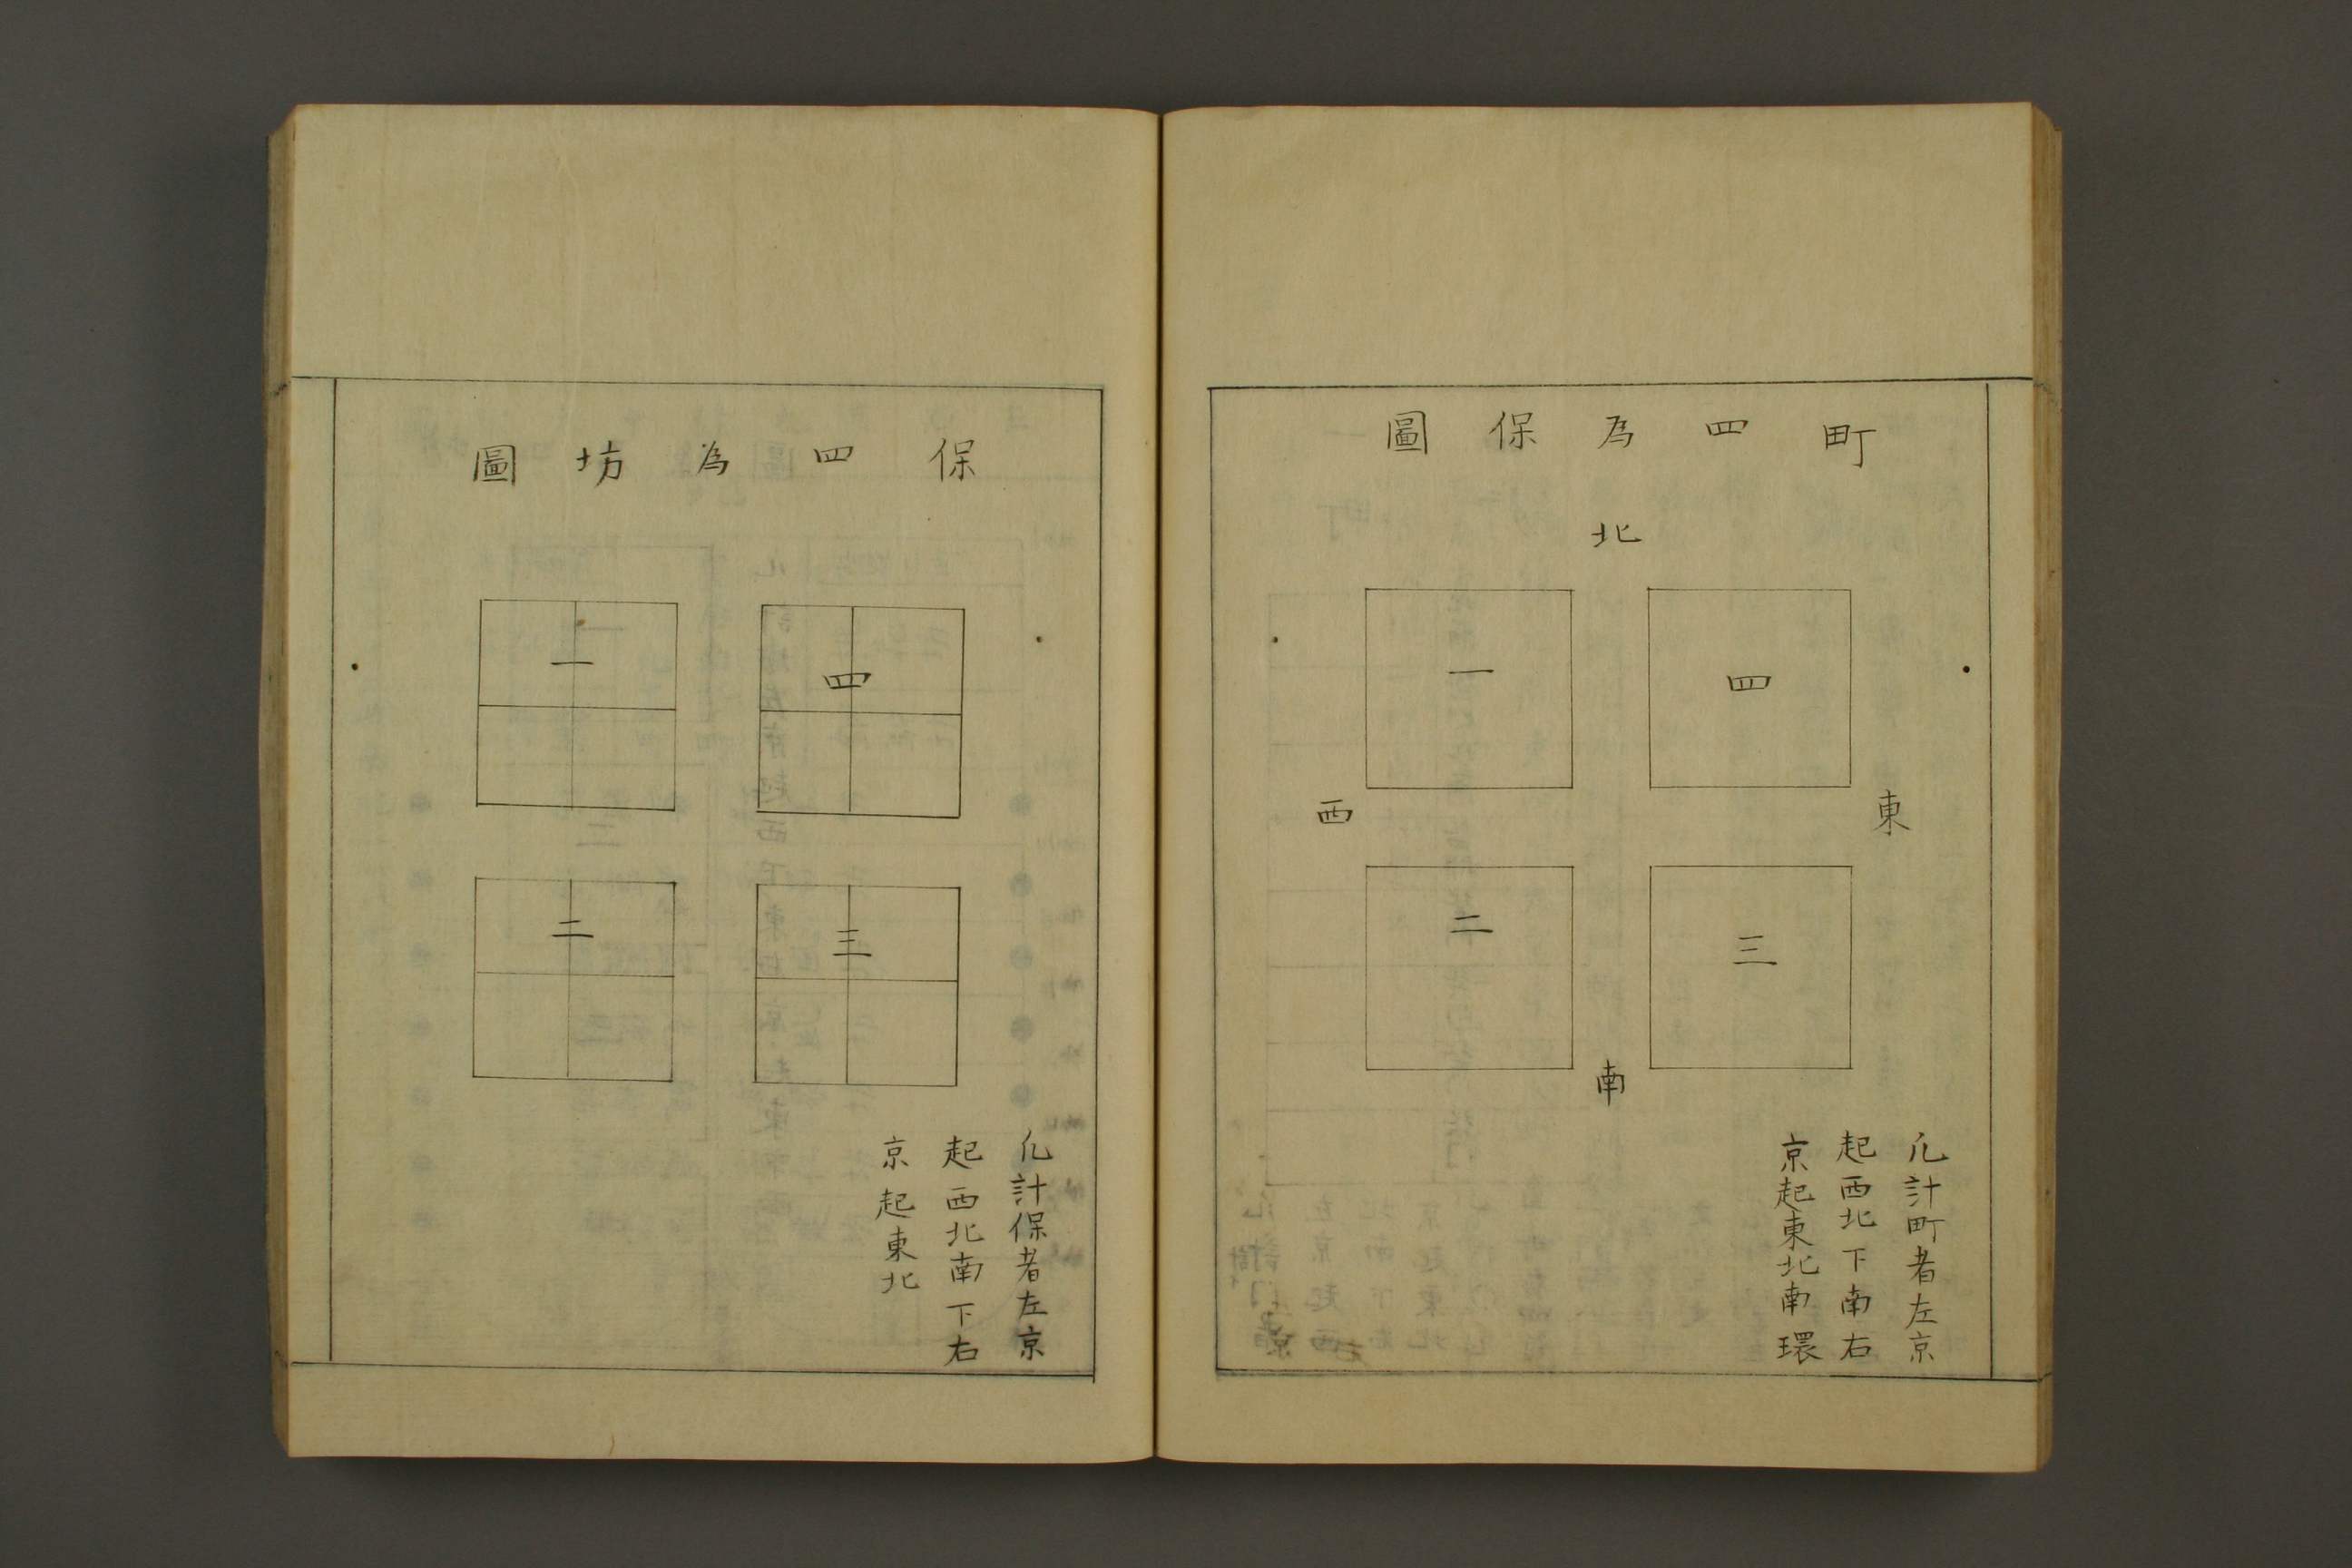 町四為保圖
北
四
一
東
西
三
二
南
凡計町者左京
起西北下南右
京起東北南環
保四為坊圖
四
一
三
二
凡計保者左京
起西北南下右
京起東北